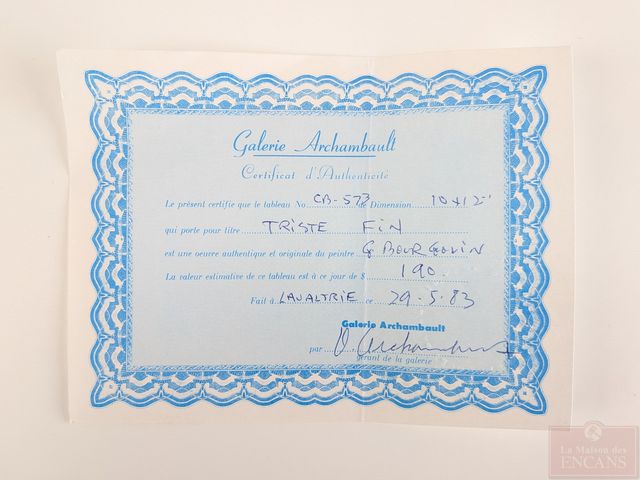 Galerie Archambault
Certificat d'Authenticité
Le présent certifie que le tableau No. CB-573 de Dimension 10x12"
qui porte pour titre TRISTE FIN
est une oeuvre authentique et originale du peintre G BOURGOUIN
La valeur estimative de ce tableau est à ce jour de $ 190.
Fait à LAVALTRIE ce 29.5.83
Galerie Archambault
par Archambault
gérant de la galerie
La Maison des
ENCANS